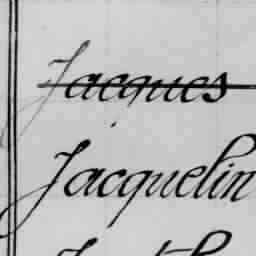 Jacques
Jacquelin